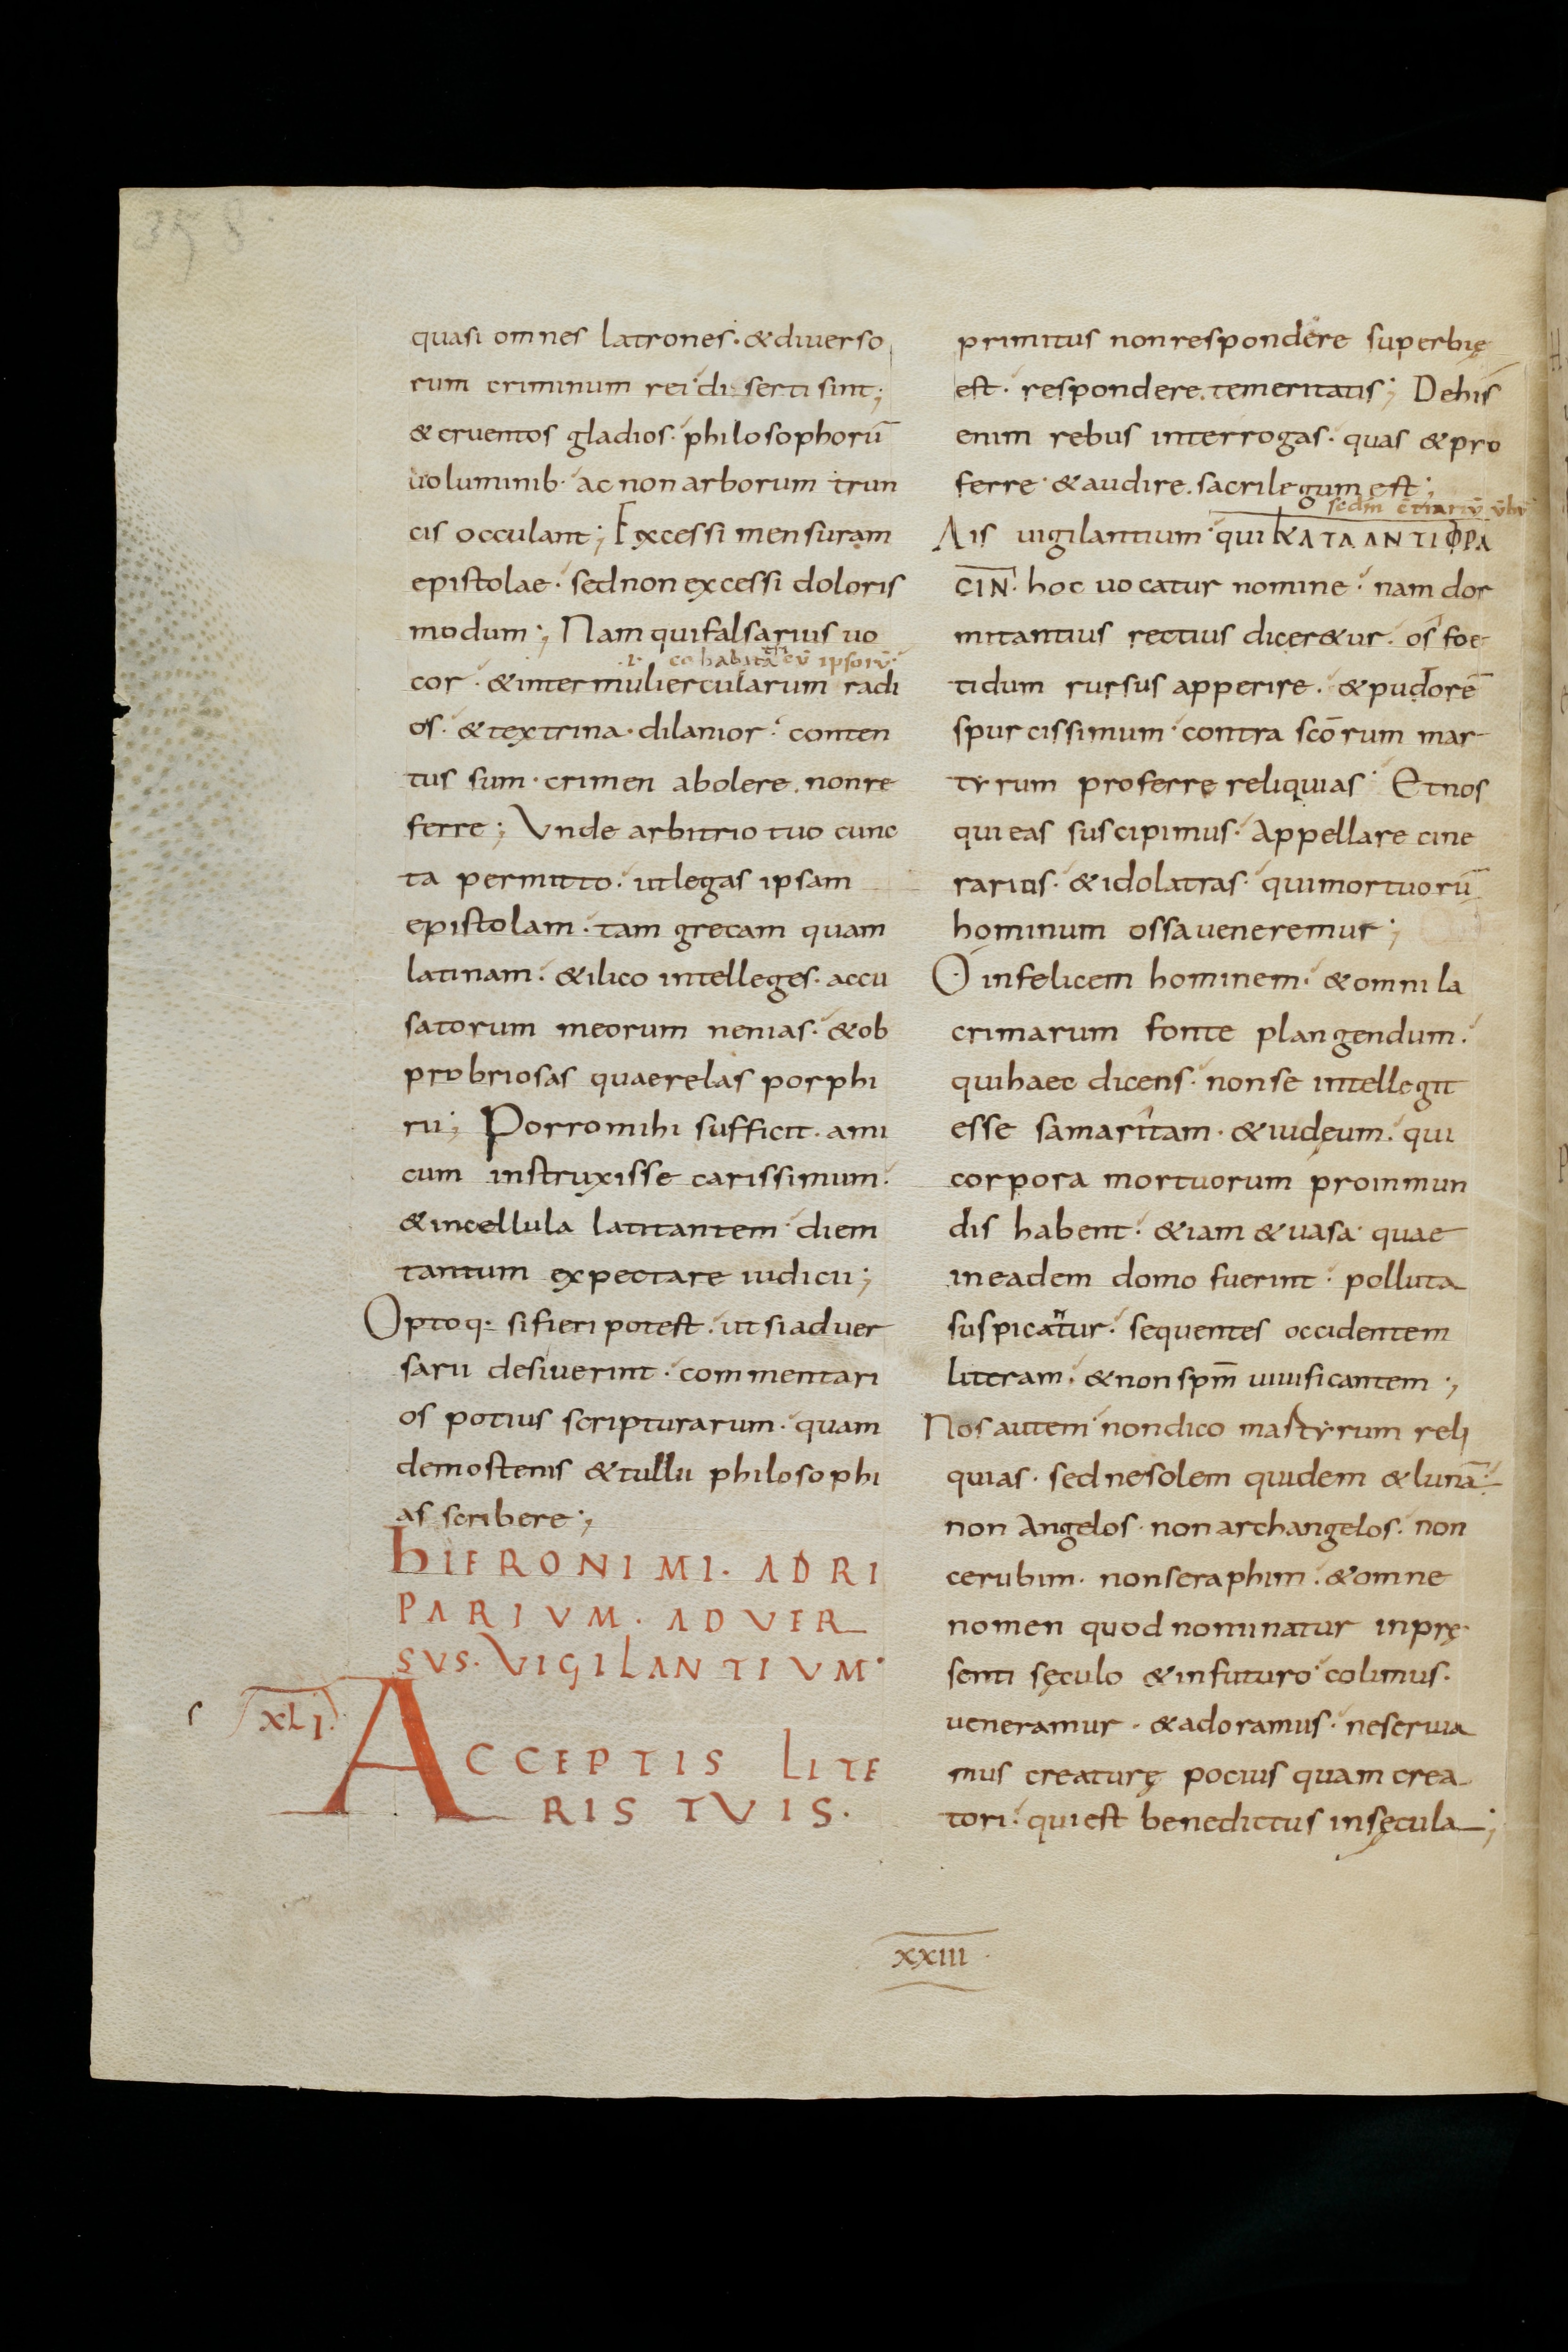 358
quasi omnes latrones. & diuerso
rum criminum rei diserti sint;
& cruentos gladios. philosophorū
uoluminib. ac non arborum trun
cis occulant; Excessi mensuram
epistolae. sed non excessi doloris
modum; Nam qui falsarius uo
cor. & inter muliercularum radi
os. & textrina. dilanior. conten
tus sum. crimen abolere. non re
ferre; Vnde arbitrio tuo cunc
ta permitto. ut legas ipsam
epistolam. tam grecam quam
latinam. & ilico intelleges. accu
satorum meorum nenias. & ob
probriosas quaerelas porphi
rii; Porro mihi sufficit. ami
cum instruxisse carissimum.
& in cellula latitantem diem
tantum expectare iudicii;
Optoq. si fieri potest. ut si aduer
sarii desiuerint. commentari
os potius scripturarum. quam
demostenis & tullii philosophi
as scribere;
hIERONIMI. AD RI
PARIVM. ADVER
SVS. VIGILANTIVM.
XLI.
ACCEPTIS LITE
RIS TVIS.
primitus non respondere superbię
est. respondere. temeritatis; De his
enim rebus interrogas. quas & pro
ferre. & audire. sacrilegum est;
Ais uigilantium. qui ΚΑΤΑ ΑΝΤΙΦΡΑ
CΙΝ. hoc uocatur nomine. nam dor
mitantius rectius dicer&ur. os foe
tidum rursus apperire. & pudorē
spurcissimum. contra scōrum mar
tyrum proferre reliquias. Et nos
qui eas suscipimus. Appellare cine
rarius. & idolatras. qui mortuorū
hominum ossa ueneremur;
O infelicem hominem. & omni la
crimarum fonte plangendum.
qui haec dicens. non se intellegit
esse samaritam. & iudęum. qui
corpora mortuorum pro inmun
dis habent. &iam & uasa quae
in eadem domo fuerint. polluta
suspicatur. sequentes occidentem
literam. & non spm̄ uiuificantem;
Nos autem non dico martyrum reli
quias. sed ne solem quidem & lunā.
non Angelos. non archangelos. non
cerubim. non seraphim. & omne
nomen quod nominatur in prę
senti sęculo & in futuro. colimus.
ueneramur. & adoramus. ne seruia
mus creaturę pocius quam crea
tori. qui est benedictus in sęcula;
XXIII.